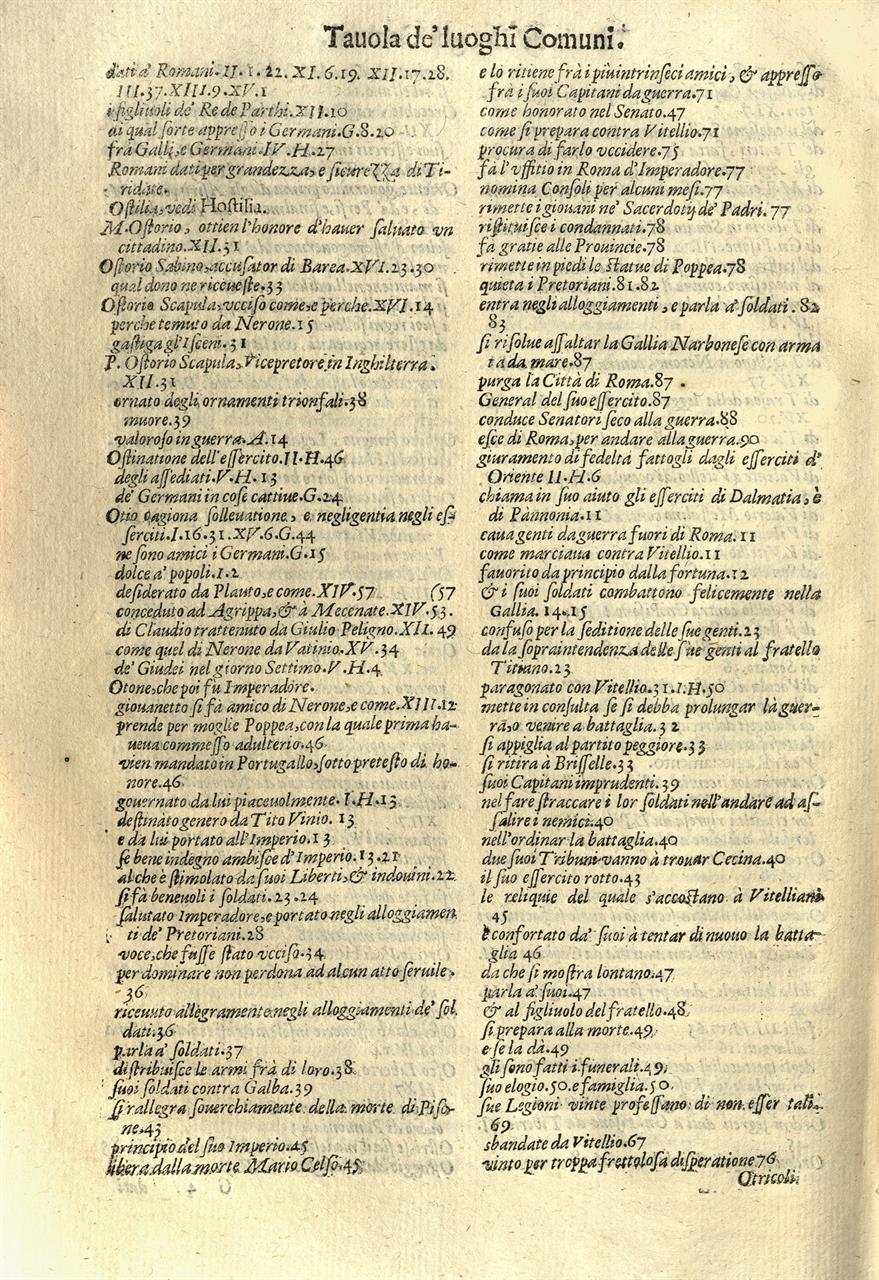 Tauola de' luoghi Comuni.
dati a' Romani. II. 1. 22. XI. 6. 19. XII. 17. 28.
III. 37. XIII. 9. XV. 1
i figliuoli de' Re de Parthi. XII. 10
di qual sorte appresso i Germani. G. 8. 20
frà Galli, e Germani. IV. H. 27
Romani dati per grandezza, e sicurezza di Ti-
ridate.
Ostilia, vedi Hostilia.
M. Ostorio, ottien l'honore d'hauer saluato vn
cittadino. XII. 31
Ostorio Sabino, accusator di Barea. XVI. 23. 30
qual dono ne riceueste. 33
Ostorio Scapula, vcciso come, e perche. XVI. 14
perche temuto da Nerone. 15
gastiga gl'Isceni. 31
P. Ostorio Scapula, Vicepretore in Inghilterra.
XII. 31
ornato degli ornamenti trionfali. 38
muore. 39
valoroso in guerra. A. 14
Ostinatione dell'essercito. II. H. 46
degli assediati. V. H. 13
de' Germani in cose cattiue. G. 24
Otio cagiona solleuatione, e negligentia negli es-
serciti. I. 16. 31. XV. 6. G. 44
ne sono amici i Germani. G. 15
dolce a' popoli. I. 2
desiderato da Plauto, e come. XIV. 57 (57
conceduto ad Agrippa, & à Mecenate. XIV. 53.
di Claudio trattenuto da Giulio Peligno. XII. 49
come quel di Nerone da Vatinio. XV. 34
de' Giudei nel giorno Settimo. V. H. 4
Otone, che poi fù Imperadore.
giouanetto si fà amico di Nerone, e come. XIII. 12
prende per moglie Poppea, con la quale prima ha-
ueua commesso adulterio. 46
vien mandato in Portugallo, sotto pretesto di ho-
nore. 46
gouernato da lui piaceuolmente. I. H. 13
destinato genero da Tito Vinio. 13
e da lui portato all'Imperio. 13
se bene indegno ambisce d'Imperio. 13. 21
al che è stimolato da suoi Liberti, & indouini. 22
si fà beneuoli i soldati. 23. 24
salutato Imperadore, e portato negli alloggiamen
ti de' Pretoriani. 28
voce, che fusse stato vcciso. 34
per dominare non perdona ad alcun atto seruile.
36
riceuuto allegramente negli alloggiamenti de' sol
dati. 36
parla a' soldati. 37
distribuisce le armi frà di loro. 38
suoi soldati contra Galba. 39
si rallegra souerchiamente della morte di Piso-
ne. 43
principio del suo Imperio. 45
libera dalla morte Mario Celso. 45
e lo ritiene frà i più intrinseci amici, & appresso
frà i suoi Capitani da guerra. 71
come honorato nel Senato. 47
come si prepara contra Vitellio. 71
procura di farlo vccidere. 75
fà l'vffitio in Roma d'Imperadore. 77
nomina Consoli per alcuni mesi. 77
rimette i giouani ne' Sacerdotij de' Padri. 77
ristituisce i condannati. 78
fa gratie alle Prouincie. 78
rimette in piedi le statue di Poppea. 78
quieta i Pretoriani. 81. 82
entra negli alloggiamenti, e parla a' soldati. 82
83
si risolue assaltar la Gallia Narbonese con arma
ta da mare. 87
purga la Città di Roma. 87.
General del suo essercito. 87
conduce Senatori seco alla guerra. 88
esce di Roma, per andare alla guerra. 90
giuramento di fedeltà fattogli dagli esserciti d'
Oriente II. H. 6
chiama in suo aiuto gli esserciti di Dalmatia, è
di Pannonia. 11
caua genti da guerra fuori di Roma. 11
come marciaua contra Vitellio. 11
fauorito da principio dalla fortuna. 12
& i suoi soldati combattono felicemente nella
Gallia. 14. 15
confuso per la seditione delle sue genti. 23
da la sopraintendenza delle sue genti al fratello
Titiano. 23
paragonato con Vitellio. 31. I. H. 50
mette in consulta se si debba prolungar là guer-
rà, o venire a battaglia. 32
si appiglia al partito peggiore. 33
si ritira à Brisselle. 33
suoi Capitani imprudenti. 39
nel fare straccare i lor soldati nell'andare ad as-
salire i nemici. 40
nell'ordinar la battaglia. 40
due suoi Tribuni vanno à trouar Cecina. 40
il suo essercito rotto. 43
le reliquie del quale s'accostano à Vitelliani
45
è confortato da' suoi à tentar di nuouo la batta-
glia 46
da che si mostra lontano. 47
parla a' suoi. 47
& al figliuolo del fratello. 48
si prepara alla morte. 49
e se la dà. 49
gli sono fatti i funerali. 49
suo elogio. 50. e famiglia. 50
sue Legioni vinte professano di non esser tali.
69
sbandate da Vitellio. 67
vinto per troppa frettolosa disperatione 76
Otricoli